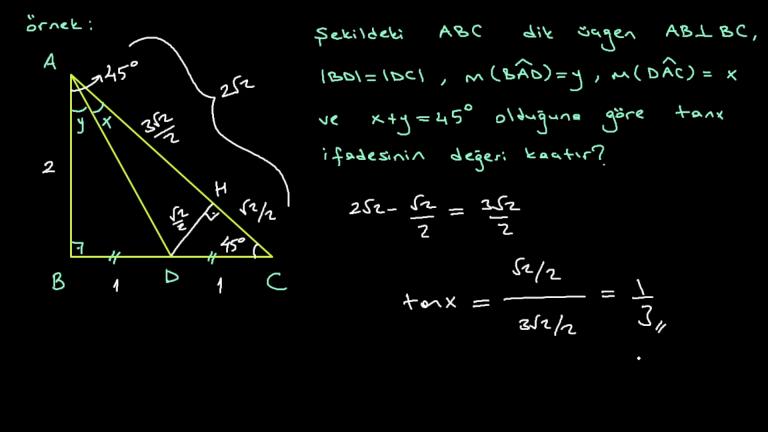 örnek:
A
45°
2√2
y
x
3√2/2
2
H
√2/2
√2/2
45°
B
1
D
1
C
Şekildeki ABC dik üçgen AB⊥BC,
|BD|=|DC|, m(BÂD)=y, m(DÂC)=x
ve x+y=45° olduğuna göre tanx
ifadesinin değeri kaçtır?
2√2 - √2/2 = 3√2/2
tanx = (√2/2)/(3√2/2) = 1/3